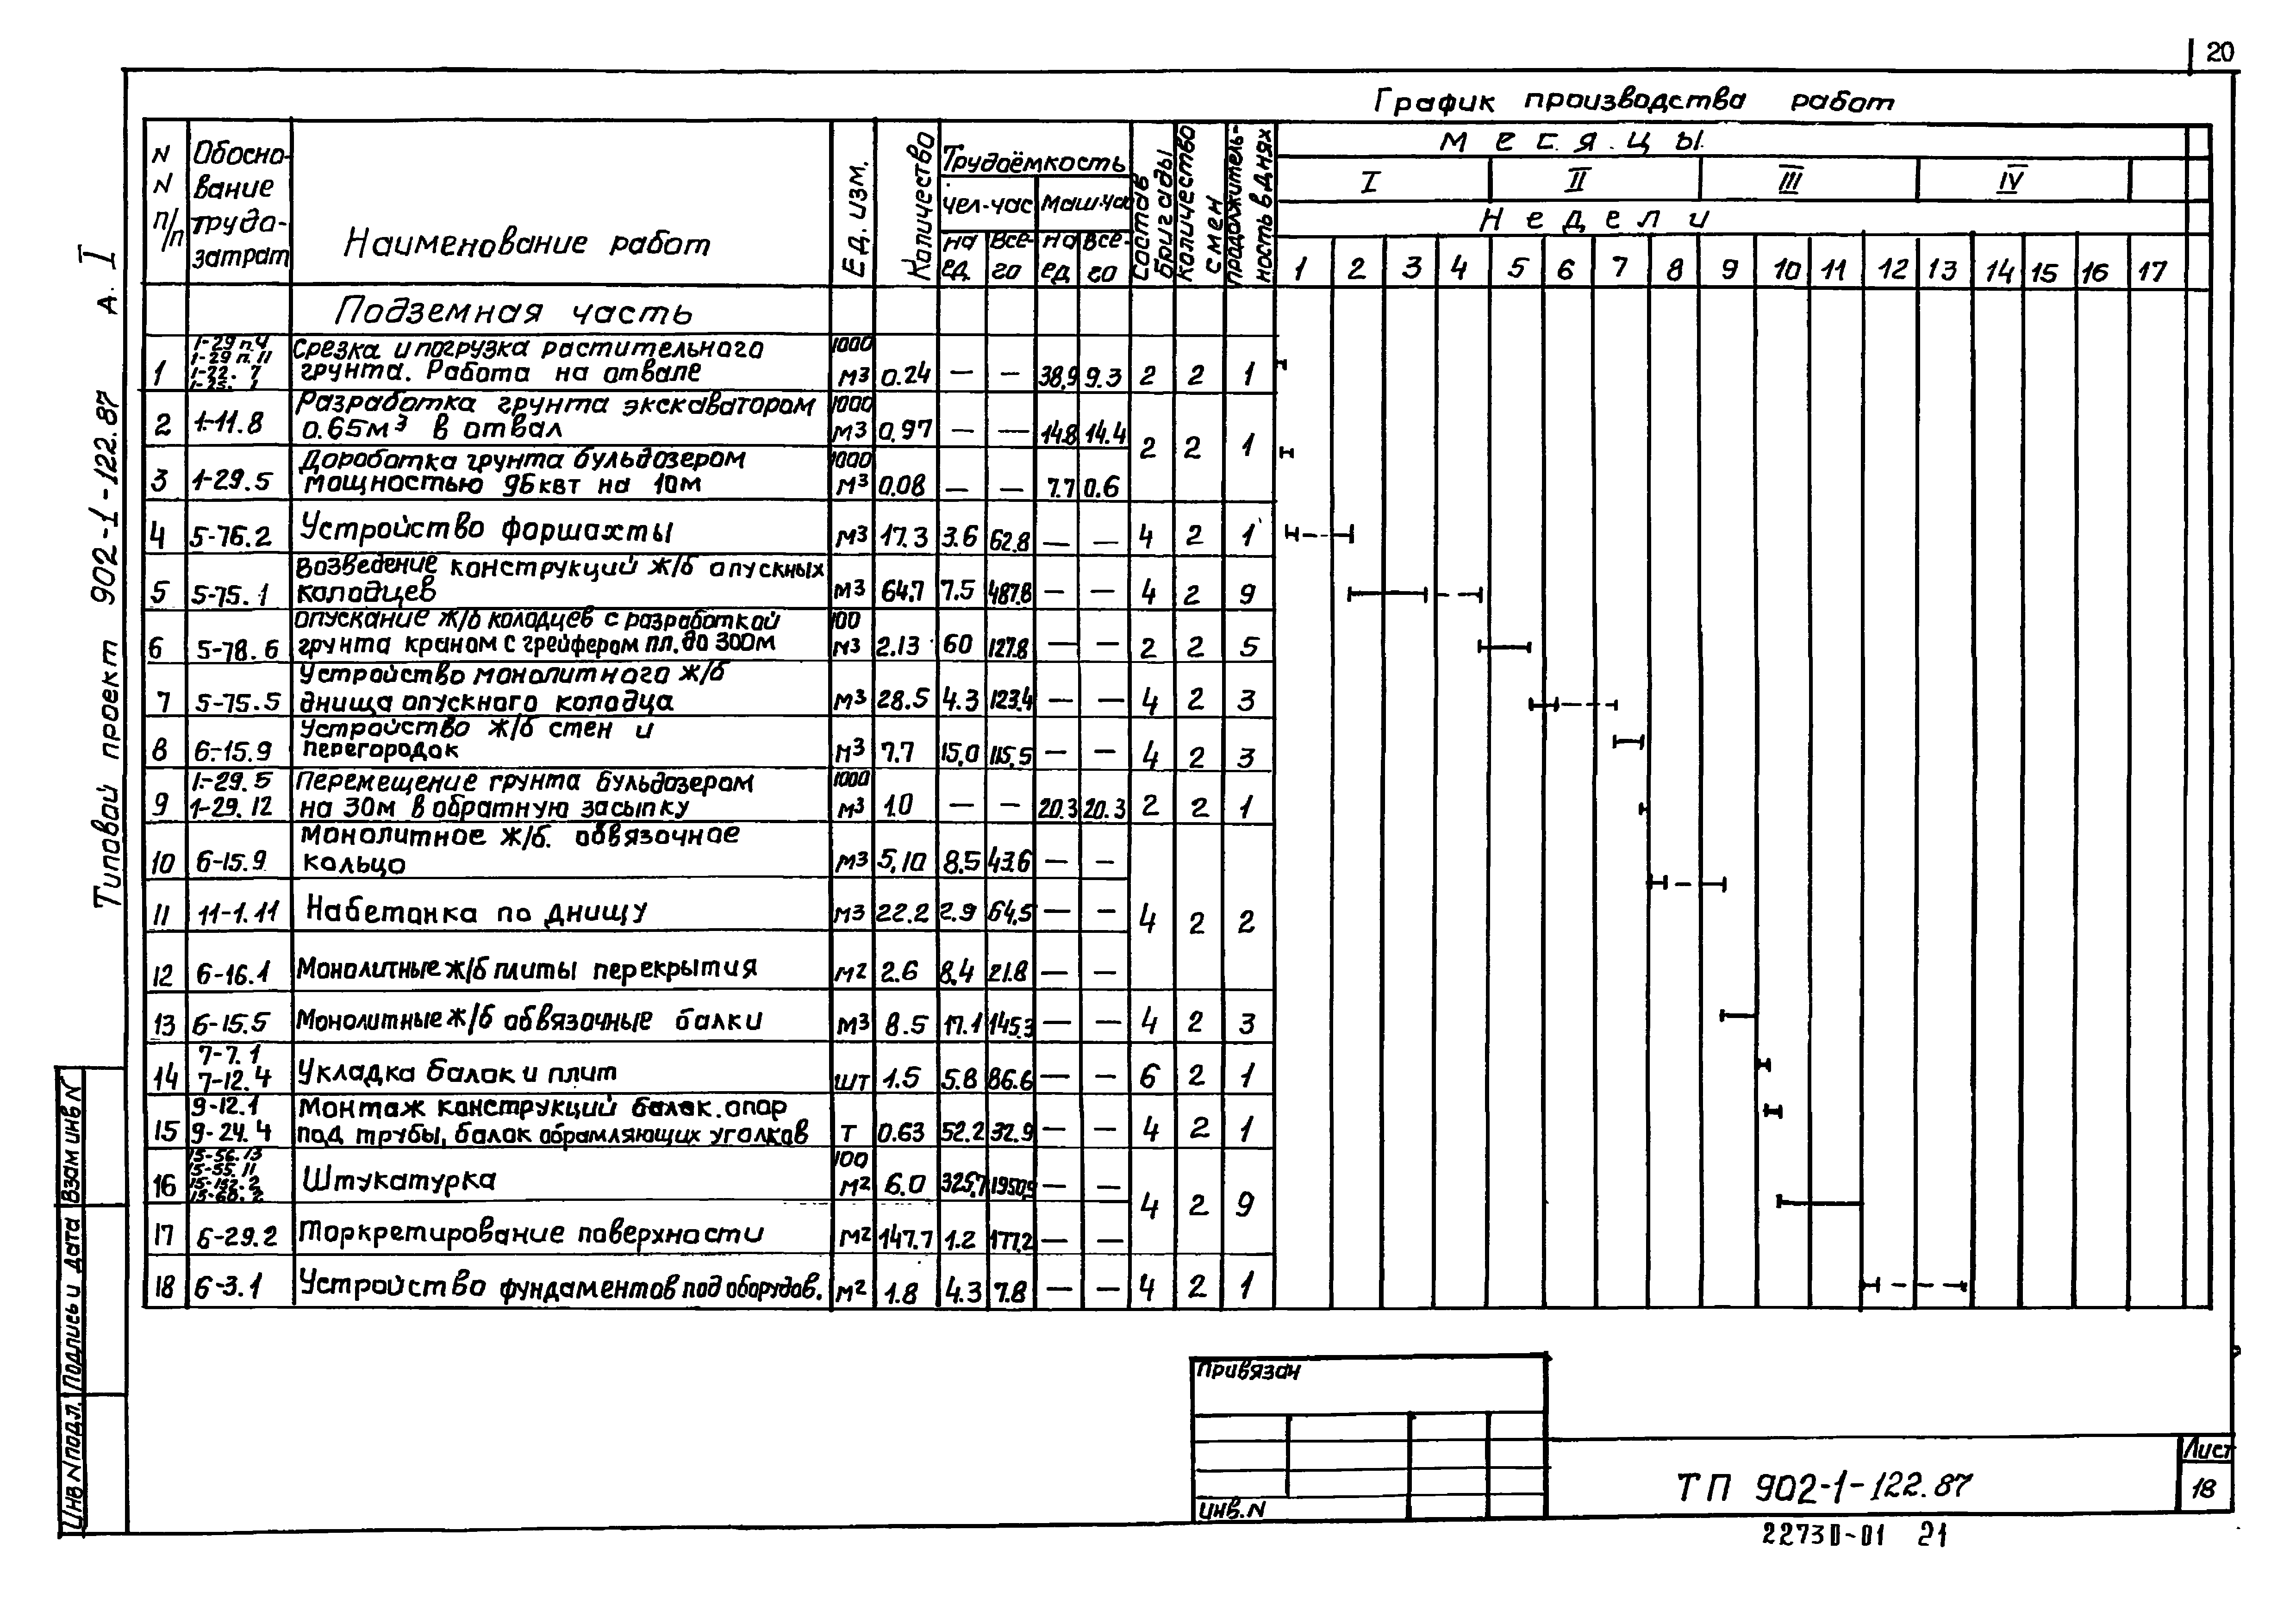 20
График производства работ
N N п/п
Обосно-вание трудо-затрат
Наименование работ
Ед. изм.
Количество
Трудоёмкость
чел-час
маш-час
на ед.
всё-го
на ед
всё-го
Состав бригады
Количество смен
Продолжитель-ность в днях
Месяцы
I II III IV
Недели
1 2 3 4 5 6 7 8 9 10 11 12 13 14 15 16 17
Подземная часть
1-29 п.4
1-29 п.11
1-22. 7
1-25. 1
Срезка и погрузка растительного 1000
1 грунта. Работа на отвале м3 0.24 — — 38,9 9.3 2 2 1
Разработка грунта экскаватором 1000
2 1-11.8 0.65м3 в отвал м3 0,97 — — 14.8 14.4 2 2 1
Доработка грунта бульдозером 1000
3 1-29.5 мощностью 96квт на 10м м3 0.08 — — 7.7 0.6
4 5-76.2 Устройство форшахты м3 17.3 3.6 62.8 — — 4 2 1
Возведение конструкций ж/б опускных
5 5-75.1 колодцев м3 64.7 7.5 487.8 — — 4 2 9
опускание ж/б колодцев с разработкой 100
6 5-78.6 грунта краном с грейфером пл. до 300м м3 2.13 60 127.8 — — 2 2 5
Устройство монолитного ж/б
7 5-75.5 днища опускного колодца м3 28.5 4.3 123.4 — — 4 2 3
Устройство ж/б стен и
8 6-15.9 перегородок м3 7.7 15,0 115,5 — — 4 2 3
1-29.5 Перемещение грунта бульдозером 1000
9 1-29.12 на 30м в обратную засыпку м3 1.0 — — 20.3 20.3 2 2 1
Монолитное ж/б. обвязочное
10 6-15.9 кольцо м3 5,10 8.5 43.6 — —
11 11-1.11 Набетонка по днищу м3 22.2 2.9 64,5 — — 4 2 2
12 6-16.1 Монолитные ж/б плиты перекрытия м2 2.6 8,4 21.8 — —
13 6-15.5 Монолитные ж/б обвязочные балки м3 8.5 17.1 145.3 — — 4 2 3
7-7.1
14 7-12.4 Укладка балок и плит шт 1.5 5.8 86.6 — — 6 2 1
9-12.1 Монтаж конструкций балок. опор
15 9-24.4 под трубы, балок обрамляющих уголков т 0.63 52.2 32.9 — — 4 2 1
15-56.13
15-55.11
15-152.2
15-60.2
100
16 Штукатурка м2 6.0 325,7 1950,9 — — 4 2 9
17 6-29.2 Торкретирование поверхности м2 147.7 1.2 177.2 — —
18 6-3.1 Устройство фундаментов под оборудов. м2 1.8 4.3 7.8 — — 4 2 1
Типовой проект 902-1-122.87 А. I
Взам инв N
Подпись и дата
Инв N подл.
Привязан
Инв. N
ТП 902-1-122.87
Лист
18
22730-01 21